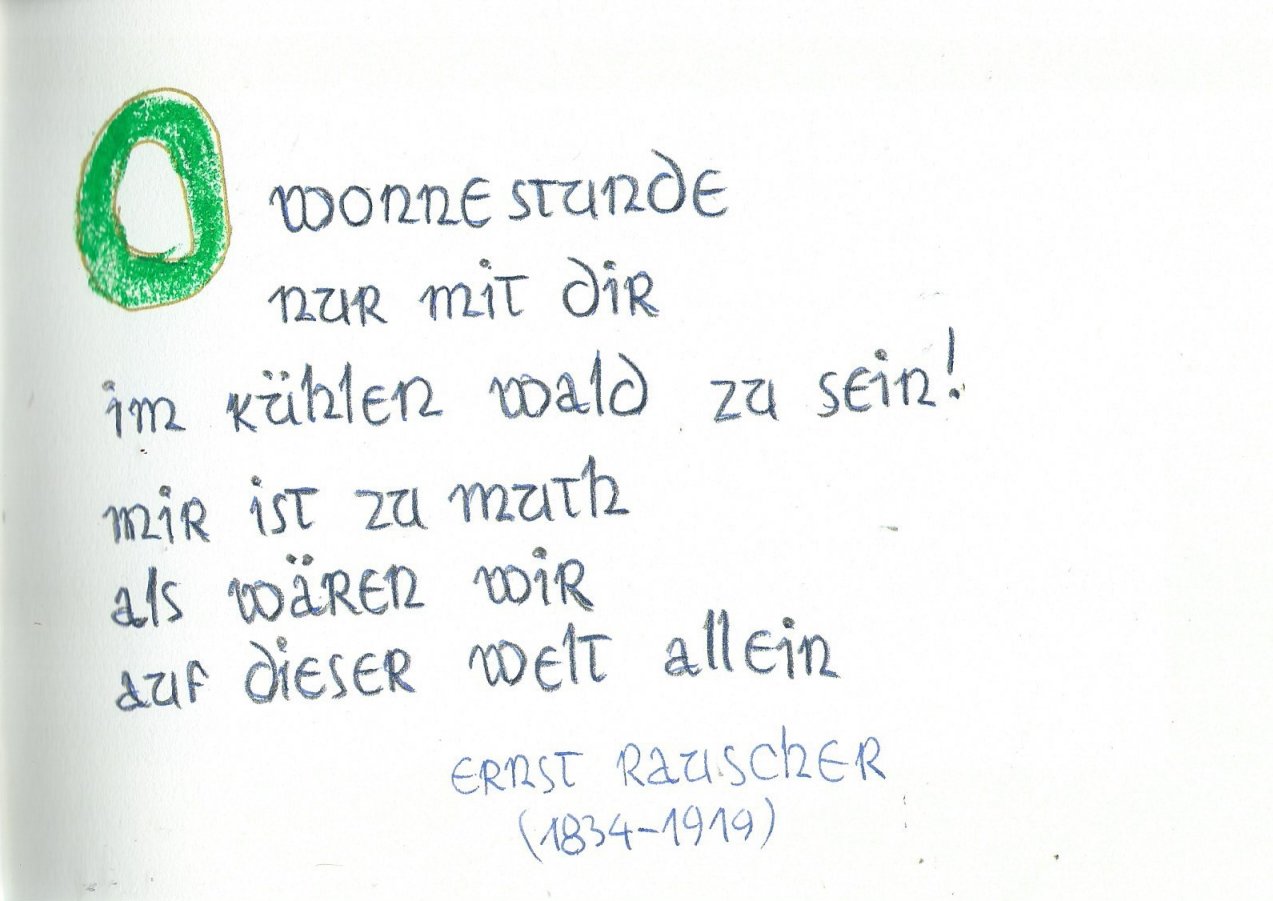 O wonnestunde
nur mit dir
im kühlen wald zu sein!
mir ist zu muth
als wären wir
auf dieser welt allein
ernst rauscher
(1834-1919)